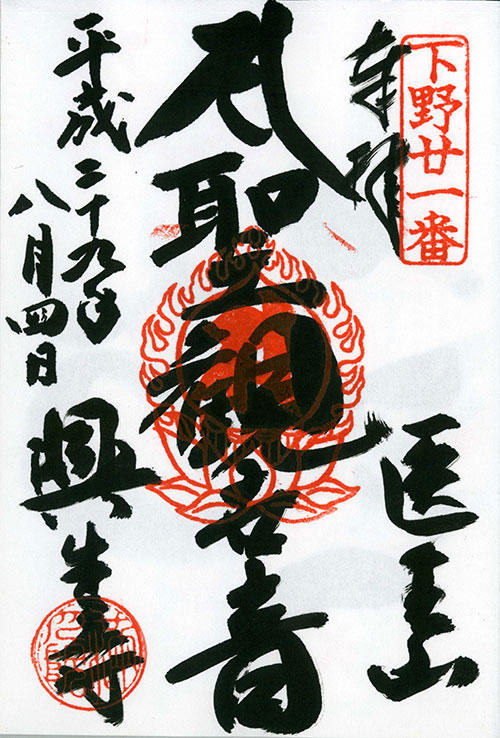 下野廿一番
奉拝
医王山
聖観世音
平成二十九年
八月四日
興生寺